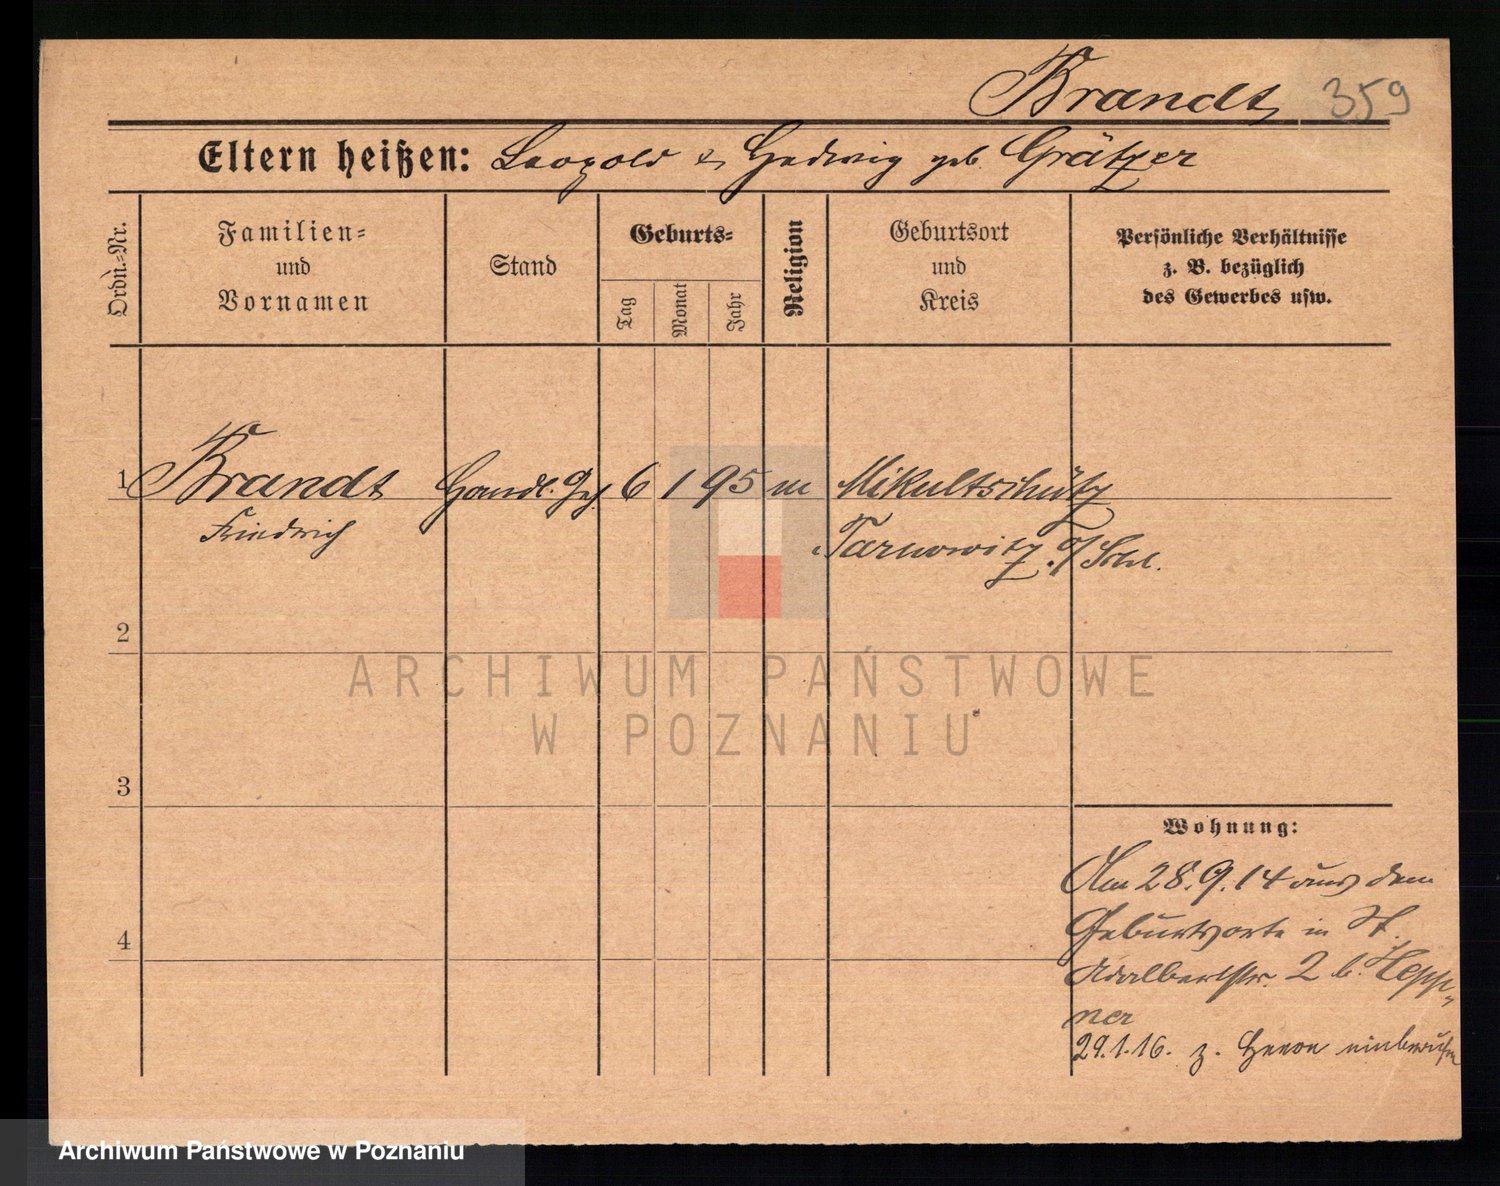 Brandt, 359
Eltern heißen: Leopold & Hedwig geb. Grätzer
Ordn.-Nr.
Familien-
und
Vornamen
Stand
Geburts-
Tag
Monat
Jahr
Religion
Geburtsort
und
Kreis
Persönliche Verhältnisse
z. B. bezüglich
des Gewerbes usw.
1 Brandt Handl. Geh. 6 1 95 m Mikultschütz
Friedrich Tarnowitz o/Schl.
2
3
4
Wohnung:
Am 28.9.14 aus dem
Geburtsorte in St.
Adalbertstr. 2 b. Hepp-
ner
29.1.16. z. Heere einberufen
ARCHIWUM PAŃSTWOWE
W POZNANIU
Archiwum Państwowe w Poznaniu